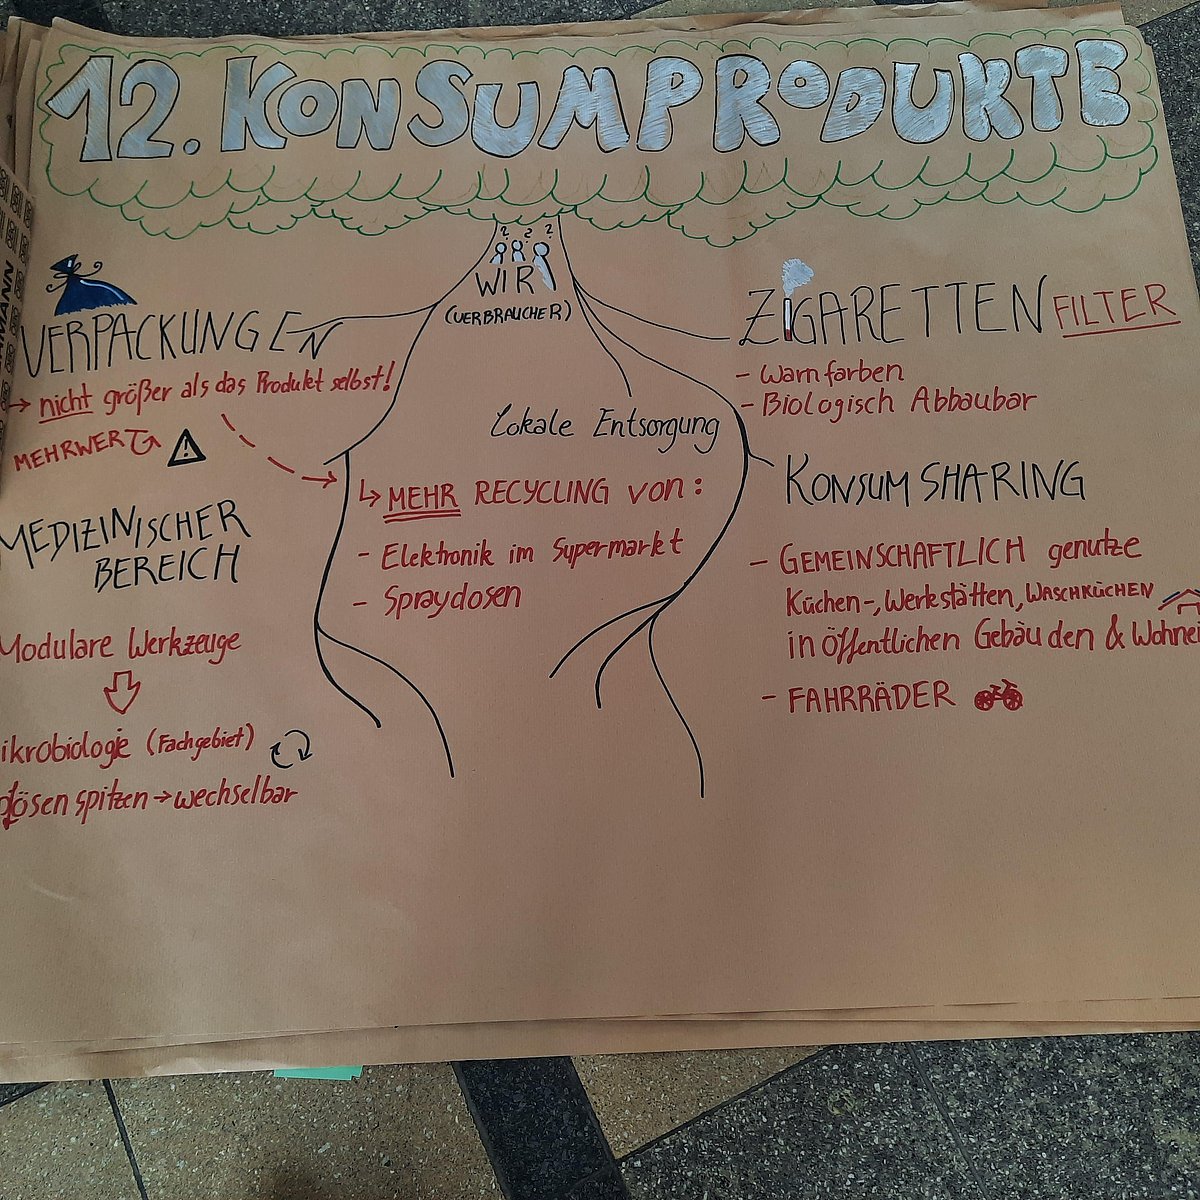 12. KONSUMPRODUKTE
? ? ?
WIR
(VERBRAUCHER)
VERPACKUNGEN
→ nicht größer als das Produkt selbst!
MEHRWERT
MEDIZINISCHER
BEREICH
Modulare Werkzeuge
ikrobiologie (Fachgebiet)
ösen spitzen → wechselbar
Lokale Entsorgung
↳ MEHR RECYCLING von:
- Elektronik im Supermarkt
- Spraydosen
ZIGARETTEN FILTER
- Warnfarben
- Biologisch Abbaubar
KONSUM SHARING
- GEMEINSCHAFTLICH genutze
Küchen-, Werkstätten, WASCHKÜCHEN
in öffentlichen Gebäuden & Wohnei
- FAHRRÄDER
MANN